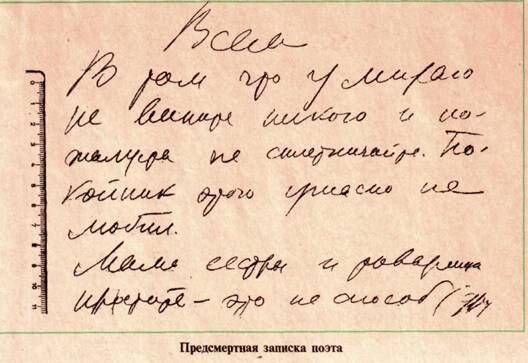 Всем
В том что умираю
не вините никого и по-
жалуйста не сплетничайте. По-
койник этого ужасно не
любил.
Мама сестры и товарищи
простите – это не способ (дру
Предсмертная записка поэта